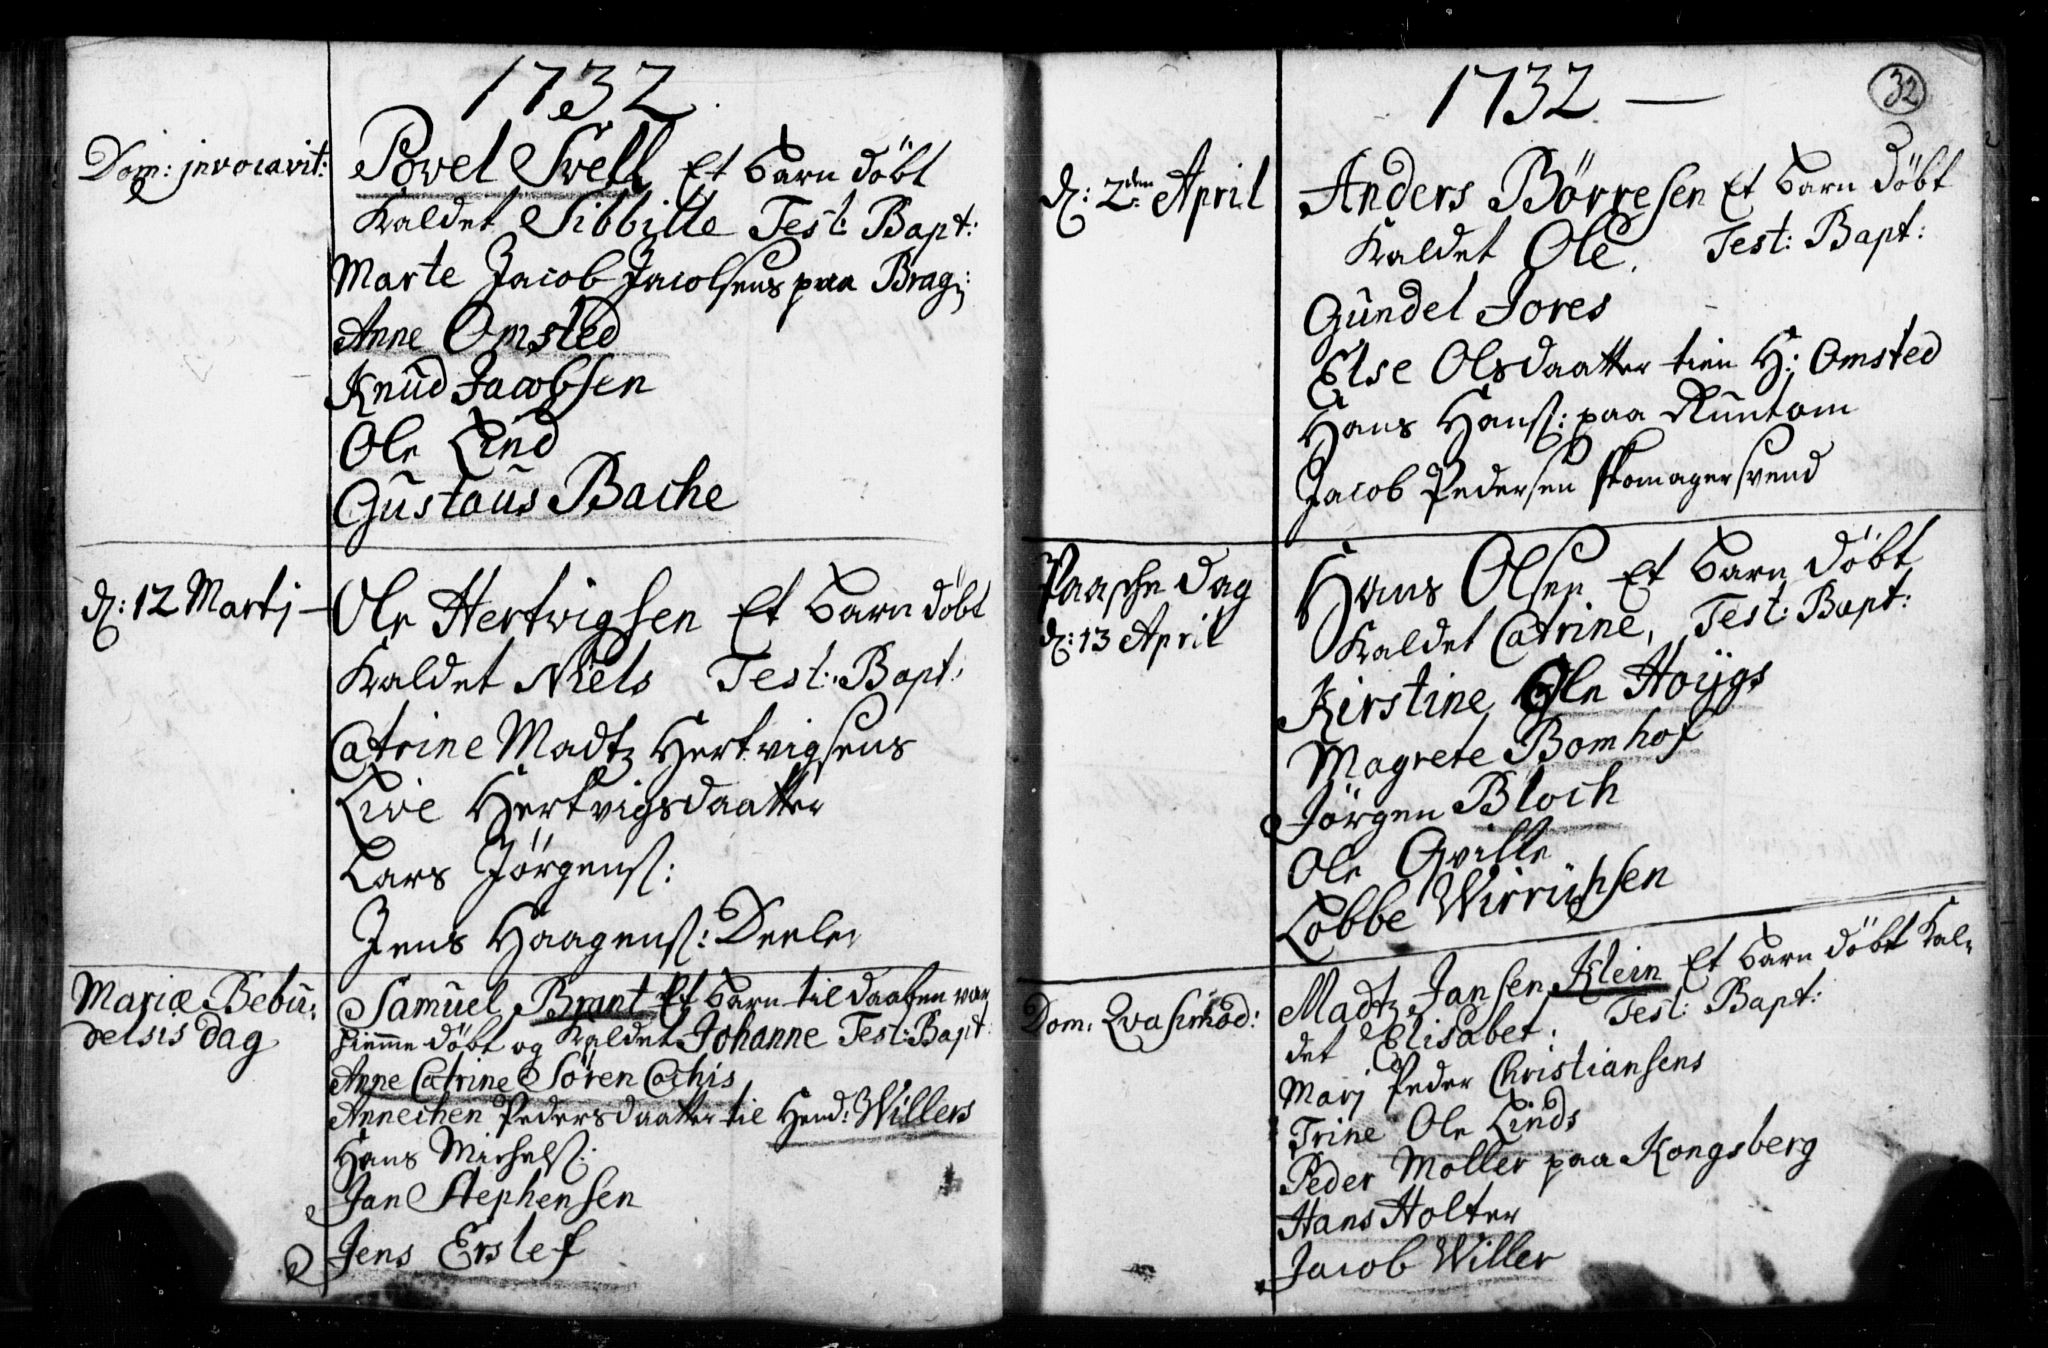 1732
Dom: jnvocavit:
Povel Svell Et barn döbt
Kaldet Sibbille Test: Bapt:
Marte Jacob Jacobsens paa Brag:
Anne Omsted
Knud Jacobsen
Ole Lind
Gustavus Bache
d: 12 Martj
Ole Hertvigsen Et barn döbt
Kaldet Niels Test: Bapt:
Catrine Madtz Hertvigsens
Live Hertvigsdaatter
Lars Jörgens:
Jens Haagens:
Mariæ Bebu-
delsis Dag
Samuel Brant Et barn til daaben var
hiemme döbt og Kaldet Johanne Test: Bapt:
Anne Catrine Sören Cochis
Annechen Pedersdaatter til Hend: Willers
Hans Michels:
Jan Stephensen
Jens Erslef
1732
32
d: 2den April
Anders Börresen Et barn döbt
Kaldet Ole. Test: Bapt:
Gundel Jores
Else Olsdaatter tien H: Omsted
Hans Hans: paa Runtom
Jacob Pedersen skomagersvend
Paasche Dag
d: 13 April
Hans Olsen Et barn döbt
Kaldet Catrine, Test: Bapt:
Kirstine Ole Hoygs
Magrete Bomhof
Jörgen Bloch
Ole Qville
Lobbe
Dom: Qvasimod:
Madtz Jansen Klein Et barn döbt Kal-
det Elisabet: Test: Bapt:
Marj Peder Christiansens
Trine Ole Linds
Peder Moller paa Kongsberg
Hans Holter
Jacob Willer